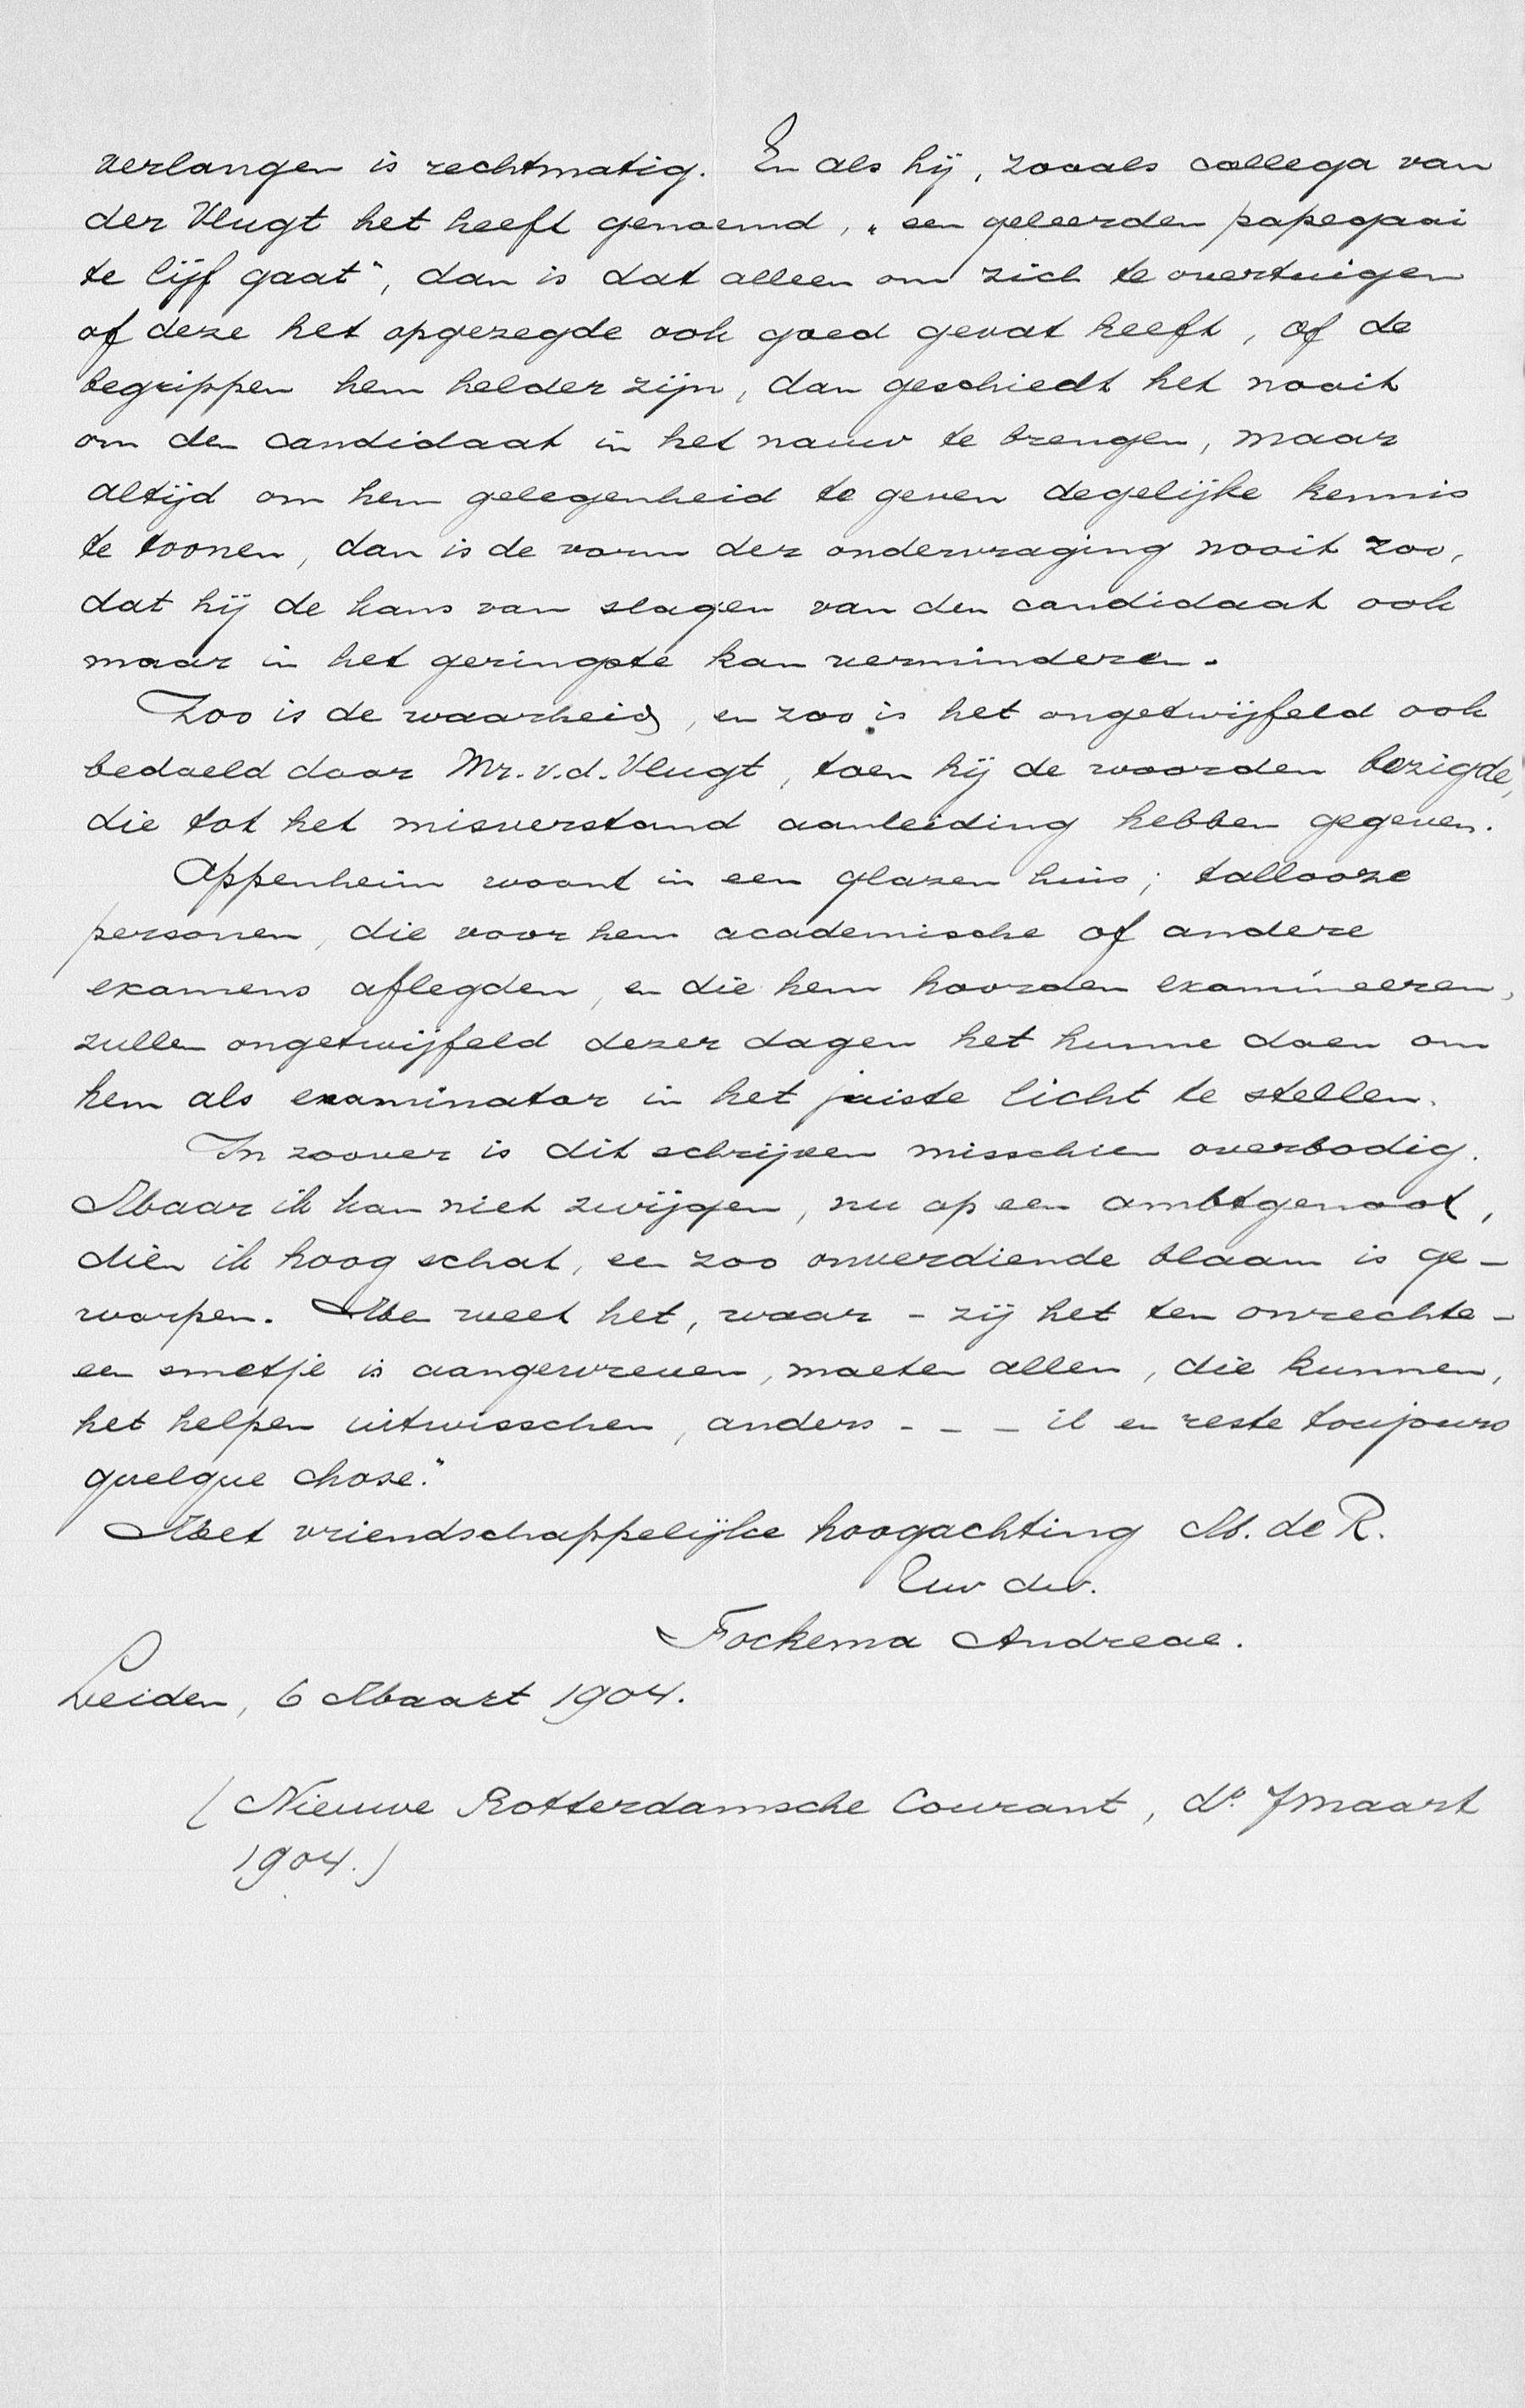 verlangen is rechtmatig. En als hij, zooals collega van
der Vlugt het heeft genoemd, „een geleerden papegaai
te lijf gaat", dan is dat alleen om zich te overtuigen
of deze het opgezegde ook goed gevat heeft, of de
begrippen hem helder zijn, dan geschiedt het nooit
om den candidaat in het nauw te brengen, maar
altijd om hem gelegenheid te geven degelijke kennis
te toonen, dan is de vorm der ondervraging nooit zoo,
dat hij de kans van slagen van den candidaat ook
maar in het geringste kan verminderen.
Zoo is de waarheid, en zoo is het ongetwijfeld ook
bedoeld door Mr. v.d. Vlugt, toen hij de woorden bezigde,
die tot het misverstand aanleiding hebben gegeven.
Oppenheim woont in een glazen huis; tallooze
personen, die voor hem academische of andere
examens aflegden, en die hem hoorden examineeren,
zullen ongetwijfeld dezer dagen het hunne doen om
hem als examinator in het juiste licht te stellen.
In zoover is dit schrijven misschien overbodig.
Maar ik kan niet zwijgen, nu op een ambtgenoot,
dien ik hoog schat, een zoo onverdiende blaam is ge-
worpen. Men weet het, waar - zij het ten onrechte -
een smetje is aangewreven, moeten allen, die kunnen,
het helpen uitwisschen, anders - - - il en reste toujours
quelque chose."
Met vriendschappelijke hoogachting M. de R.
Uw dw.
Fockema Andreae.
Leiden, 6 Maart 1904.
(Nieuwe Rotterdamsche Courant, do. 7 maart
1904.)